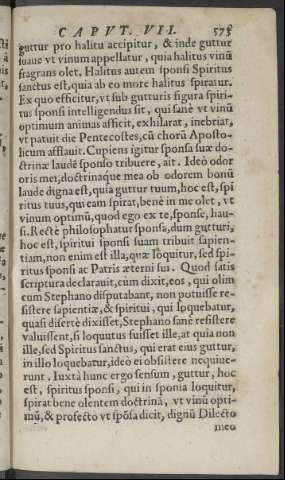 CAPVT. VII. 575
guttur pro halitu accipitur, & inde guttur
suaue vt vinum appellatur, quia halitus vinũ
fragrans olet. Halitus autem sponsi Spiritus
sanctus est, quia ab eo more halitus spiratur.
Ex quo efficitur, vt sub gutturis figura spiri-
tus sponsi intelligendus sit, qui sanè vt vinũ
optimum animas afficit, exhilarat, inebriat,
vt patuit die Pentecostes, cũ chorũ Aposto-
licum afflauit. Cupiens igitur sponsa suæ do-
ctrinæ laudẽ sponso tribuere, ait. Ideò odor
oris mei, doctrinaque mea ob odorem bonũ
laude digna est, quia guttur tuum, hoc est, spi
ritus tuus, qui eam spirat, benè in me olet, vt
vinum optimũ, quod ego ex te, sponse, hau-
si. Rectè philosophatur sponsa, dum gutturi,
hoc est, spiritui sponsi suam tribuit sapien-
tiam, non enim est illa, quæ loquitur, sed spi-
ritus sponsi ac Patris æterni sui. Quod satis
scriptura declarauit, cùm dixit, eos, qui olim
cum Stephano disputabant, non potuisse re-
sistere sapientiæ, & spiritui, qui loquebatur,
quasi disertè dixisset, Stephano sanè resistere
valuissent, si loquutus fuisset ille, at quia non
ille, sed Spiritus sanctus, qui erat eius guttur,
in illo loquebatur, ideò ei obsistere nequiue-
runt. Iuxtà hunc ergo sensum, guttur, hoc
est, spiritus sponsi, qui in sponsa loquitur,
spirat bene olentem doctrinã, vt vinũ opti-
mũ, & profecto vt spõsa dicit, dignũ Dilecto
meo